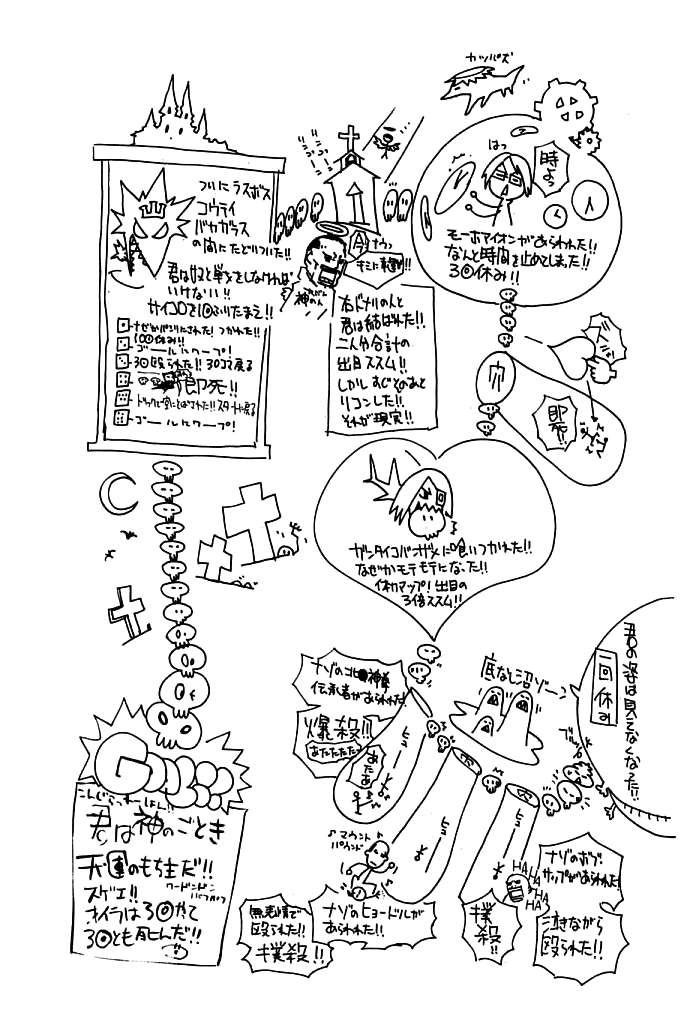 カッパズ
時よっ
はっ
モーホマイオンがあらわれた!!
なんと時間を止めてしまった!!
3回休み!!
穴
即死!!
ついにラスボス
コウテイ
バカガラス
の間にたどりついた!!
君は奴と単身をしなければ
いけない!!
サイコロを1回ふりたまえ!!
100回休み!!
ゴールにワープ!
3回殴られた!!30コマ戻る
即死!!
ゴールにワープ!
神の人
右ドナリの人と
君は結ばれた!!
二人分合計の
出目ススム!!
しかしすぐそのあと
リコンした!!
それが現実!!
ガンタイコバンザメに喰いつかれた!!
なぜかモテモテになった!!
体力マップ!出目の
3倍ススム!!
君の姿は見えなくなった!!
一回休み
底なし沼ゾー
ナゾの北●神拳
伝承者があらわれた!
爆殺!!
あたたたたた
あたあ
ヒューー
ヒューー
ヒューー
♪マウント
パウンド♪
ナゾのヒョードルが
あらわれた!!
無表情で
殴られた!!
撲殺!!
撲殺!!
ナゾのボブ
サップがあらわれた!
HAHA
HAHA
HA
泣きながら
殴られた!!
GOAL
こんぐらっちゅれーしょん!!
君は神のごとき
天運のもち主だ!!
スゲエ!!
オイラは3回やって
3回とも死んだ!!